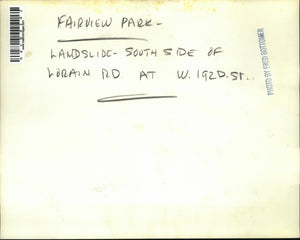 FAIRVIEW PARK-
LANDSLIDE- SOUTH SIDE OF
LORAIN RD. AT W. 192D. ST..
PHOTO BY FRED BOTTOMER